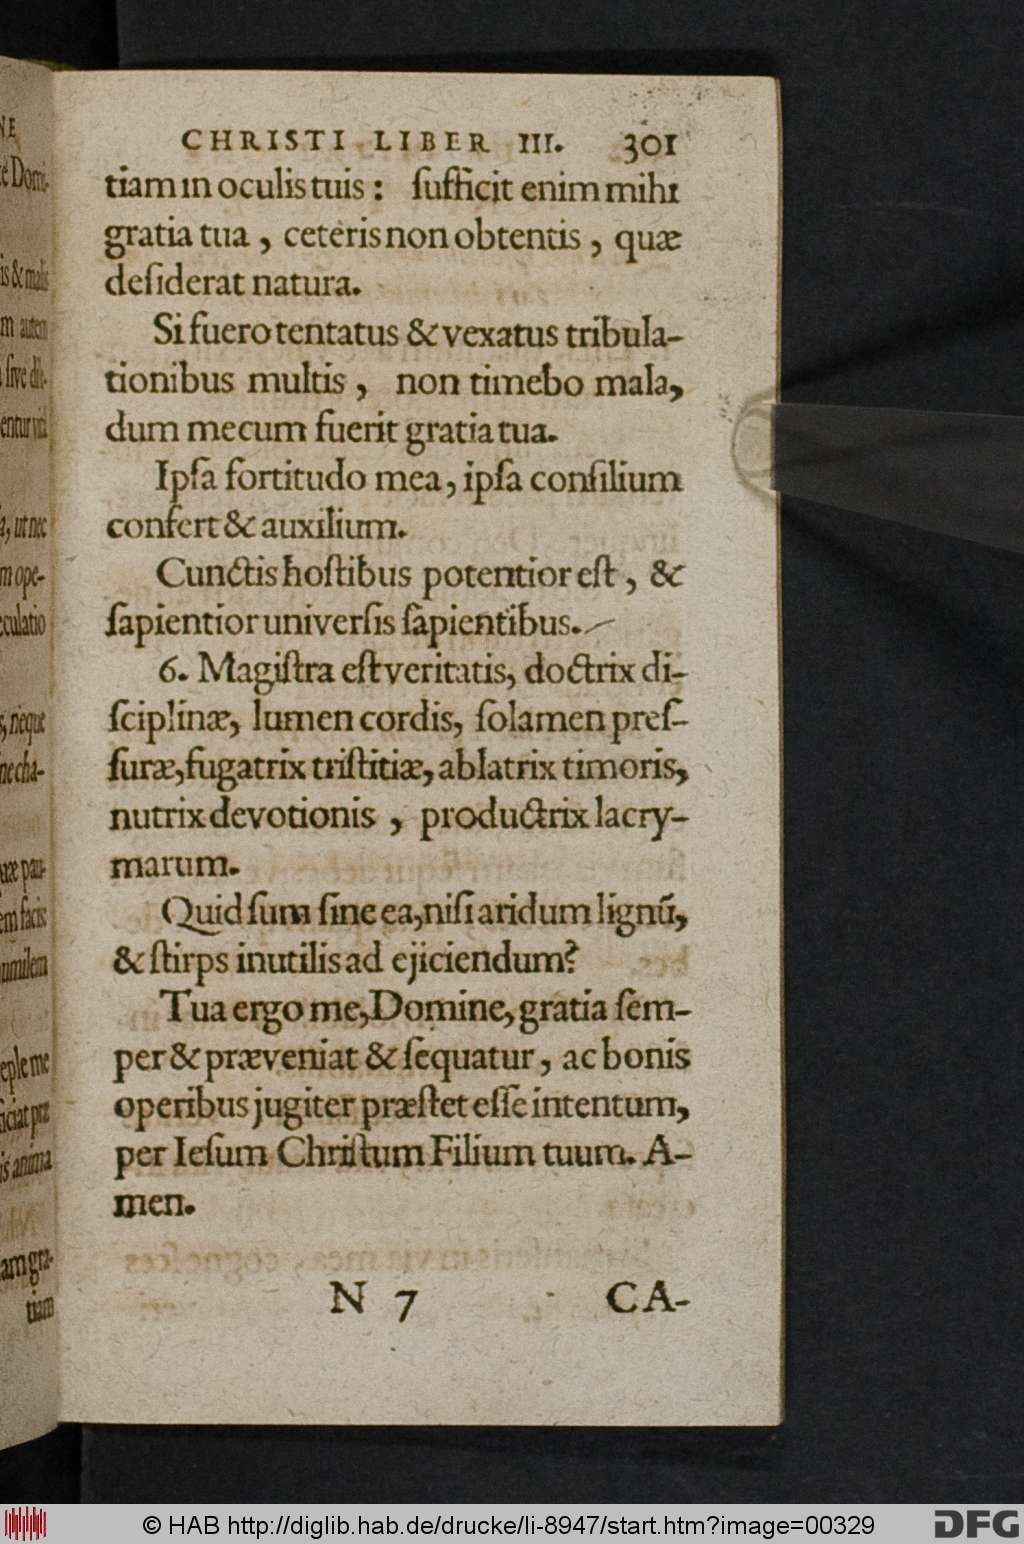 CHRISTI LIBER III. 301
tiam in oculis tuis : ſufficit enim mihi
gratia tua , ceteris non obtentis , quæ
deſiderat natura.
Si fuero tentatus & vexatus tribula-
tionibus multis , non timebo mala,
dum mecum fuerit gratia tua.
Ipſa fortitudo mea, ipſa conſilium
confert & auxilium.
Cunctis hoſtibus potentior eſt , &
ſapientior univerſis ſapientibus.
6. Magiſtra eſt veritatis, doctrix di-
ſciplinæ, lumen cordis, ſolamen preſ-
ſuræ, fugatrix triſtitiæ, ablatrix timoris,
nutrix devotionis , productrix lacry-
marum.
Quid ſum ſine ea, niſi aridum lignũ,
& ſtirps inutilis ad ejiciendum?
Tua ergo me, Domine, gratia ſem-
per & præveniat & ſequatur , ac bonis
operibus jugiter præſtet eſſe intentum,
per Ieſum Chriſtum Filium tuum. A-
men.
N 7 CA-
© HAB http://diglib.hab.de/drucke/li-8947/start.htm?image=00329
DFG